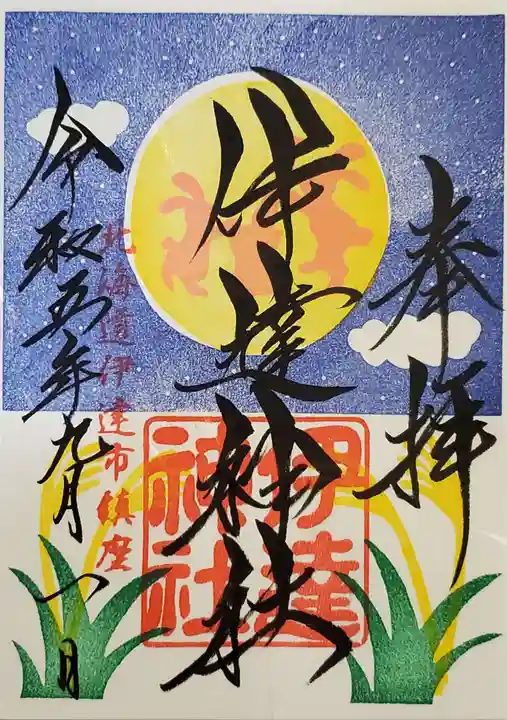 奉拝
伊達神社
伊達神社
北海道伊達市鎮座
令和五年九月一日